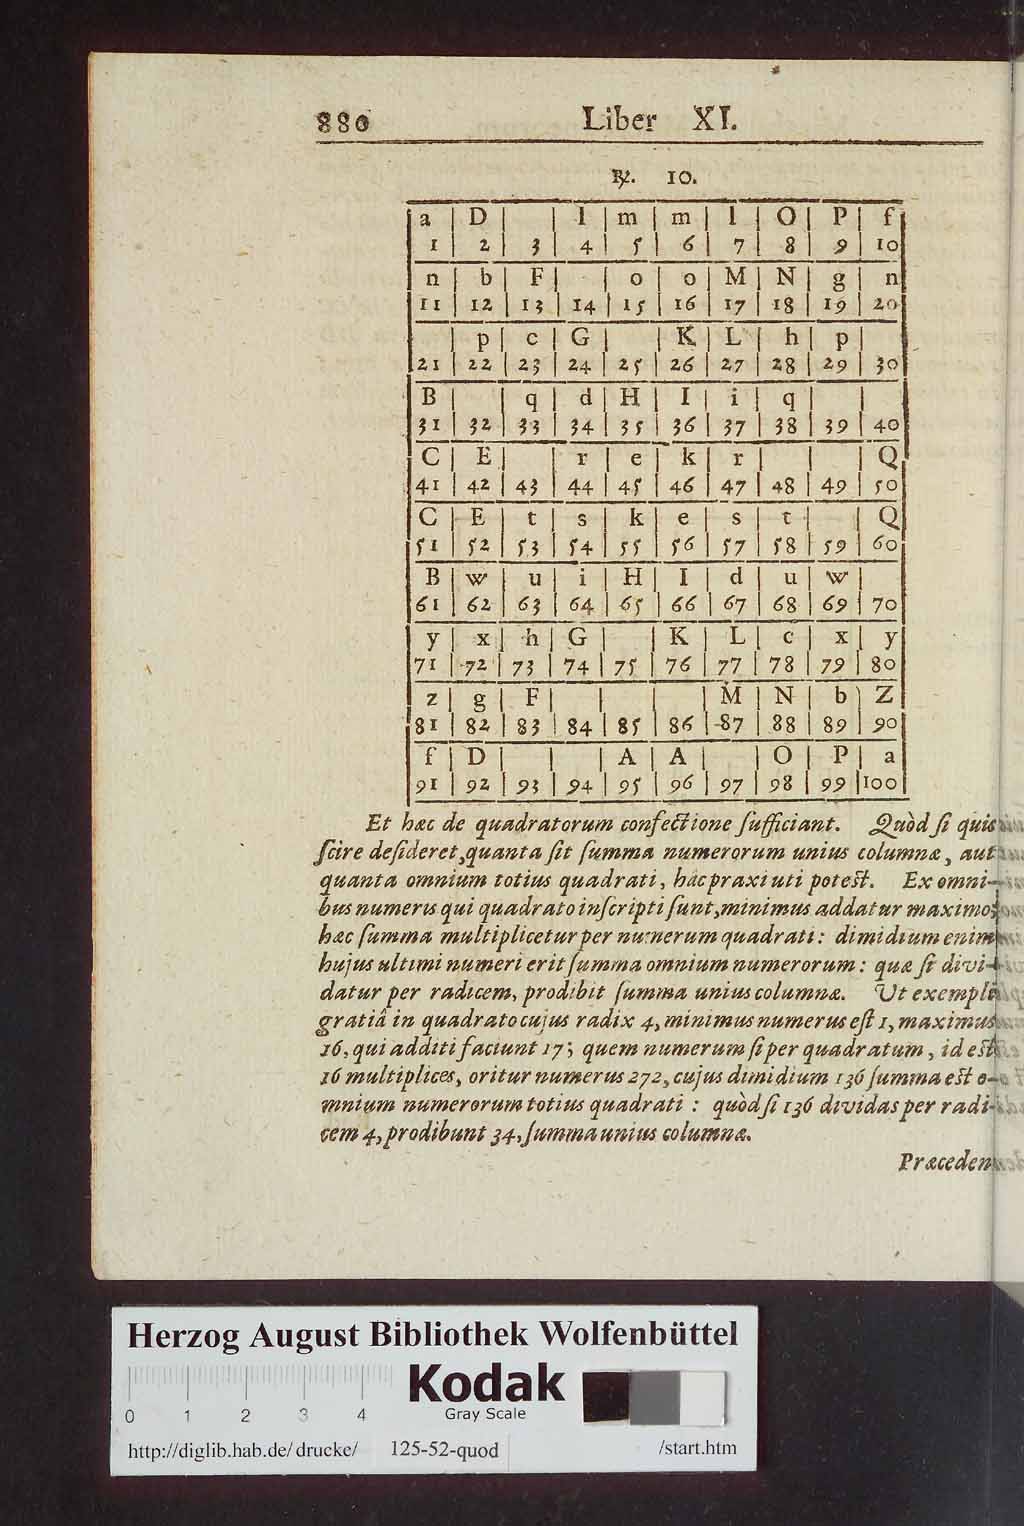 880 Liber XI.
℞. 10.
a | D | | l | m | m | l | O | P | f
1 | 2 | 3 | 4 | 5 | 6 | 7 | 8 | 9 | 10
n | b | F | | o | o | M | N | g | n
11 | 12 | 13 | 14 | 15 | 16 | 17 | 18 | 19 | 20
| p | c | G | | K | L | h | p |
21 | 22 | 23 | 24 | 25 | 26 | 27 | 28 | 29 | 30
B | | q | d | H | I | i | q | |
31 | 32 | 33 | 34 | 35 | 36 | 37 | 38 | 39 | 40
C | E | | r | e | k | r | | | Q
41 | 42 | 43 | 44 | 45 | 46 | 47 | 48 | 49 | 50
C | E | t | s | k | e | s | t | | Q
51 | 52 | 53 | 54 | 55 | 56 | 57 | 58 | 59 | 60
B | w | u | i | H | I | d | u | w |
61 | 62 | 63 | 64 | 65 | 66 | 67 | 68 | 69 | 70
y | x | h | G | | K | L | c | x | y
71 | 72 | 73 | 74 | 75 | 76 | 77 | 78 | 79 | 80
z | g | F | | | | M | N | b | Z
81 | 82 | 83 | 84 | 85 | 86 | 87 | 88 | 89 | 90
f | D | | | A | A | | O | P | a
91 | 92 | 93 | 94 | 95 | 96 | 97 | 98 | 99 | 100
Et hæc de quadratorum confectione ſufficiant. Quòd ſi quis
ſcire deſideret, quanta ſit ſumma numerorum unius columnæ, aut
quanta omnium totius quadrati, hâc praxi uti poteſt. Ex omni-
bus numeris qui quadrato inſcripti ſunt, minimus addatur maximo;
hæc ſumma multiplicetur per numerum quadrati: dimidium enim
hujus ultimi numeri erit ſumma omnium numerorum: quæ ſi divi-
datur per radicem, prodibit ſumma unius columnæ. Ut exempli
gratiâ in quadrato cujus radix 4, minimus numerus eſt 1, maximus
16, qui additi faciunt 17; quem numerum ſi per quadratum, id eſt
16 multiplices, oritur numerus 272, cujus dimidium 136 ſumma eſt o-
mnium numerorum totius quadrati: quòd ſi 136 dividas per radi-
cem 4, prodibunt 34, ſumma unius columnæ.
Præceden
Herzog August Bibliothek Wolfenbüttel
Kodak
Gray Scale
0 1 2 3 4
http://diglib.hab.de/drucke/ 125-52-quod /start.htm